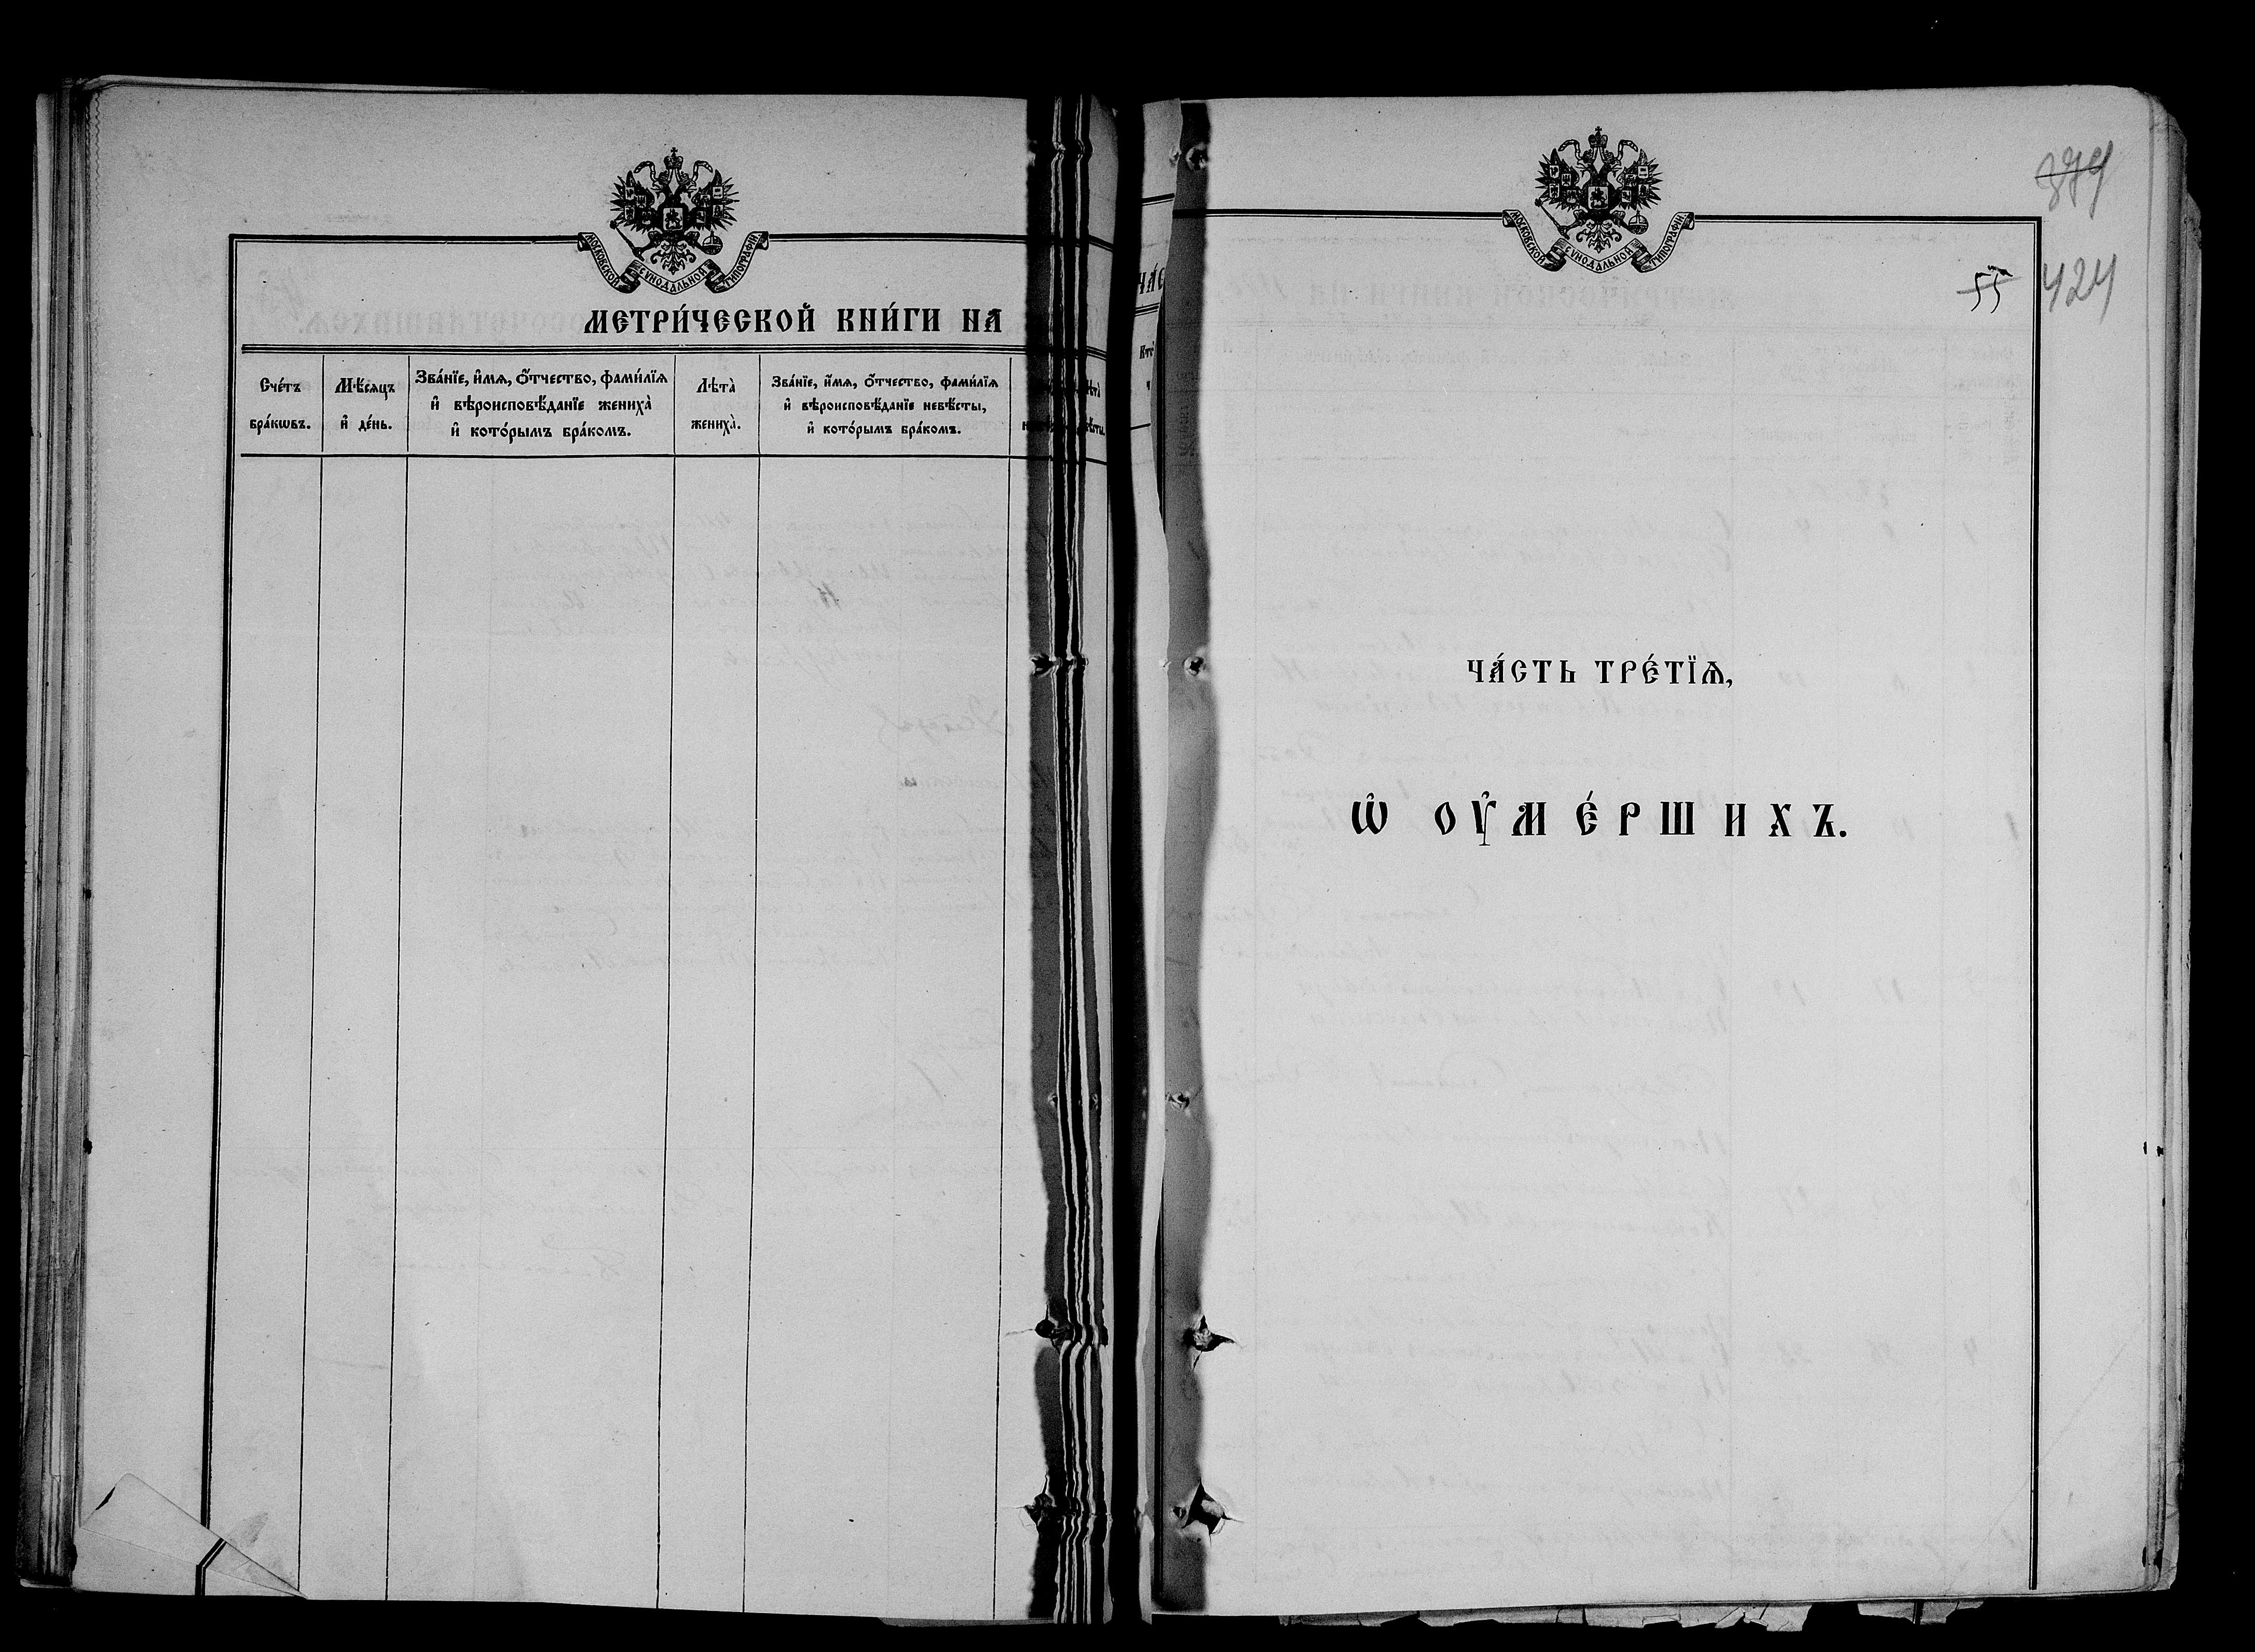 МОСКОВСКОЙ СѴНОДАЛЬНОЙ ТИПОГРАФІИ
МЕТРИ́ЧЕСКОЙ КНИ́ГИ НА
Сче́тъ бра́кѡвъ.
Мѣ́сѧцъ и҆ де́нь.
Зва́нїе, и҆́мѧ, ѻ҆́тчество, фамѝлїѧ
и҆ вѣроисповѣ́данїе жениха̀
и҆ кото́рымъ бра́комъ.
Лѣта̀ жениха̀.
Зва́нїе, и҆́мѧ, ѻ҆́тчество, фамѝлїѧ
и҆ вѣроисповѣ́данїе невѣ́сты,
и҆ кото́рымъ бра́комъ.
МОСКОВСКОЙ СѴНОДАЛЬНОЙ ТИПОГРАФІИ
379
55 424
ЧА́СТЬ ТРЕ́ТЇѦ,
Ѡ҆ ОУ҆МЕ́РШИХЪ.